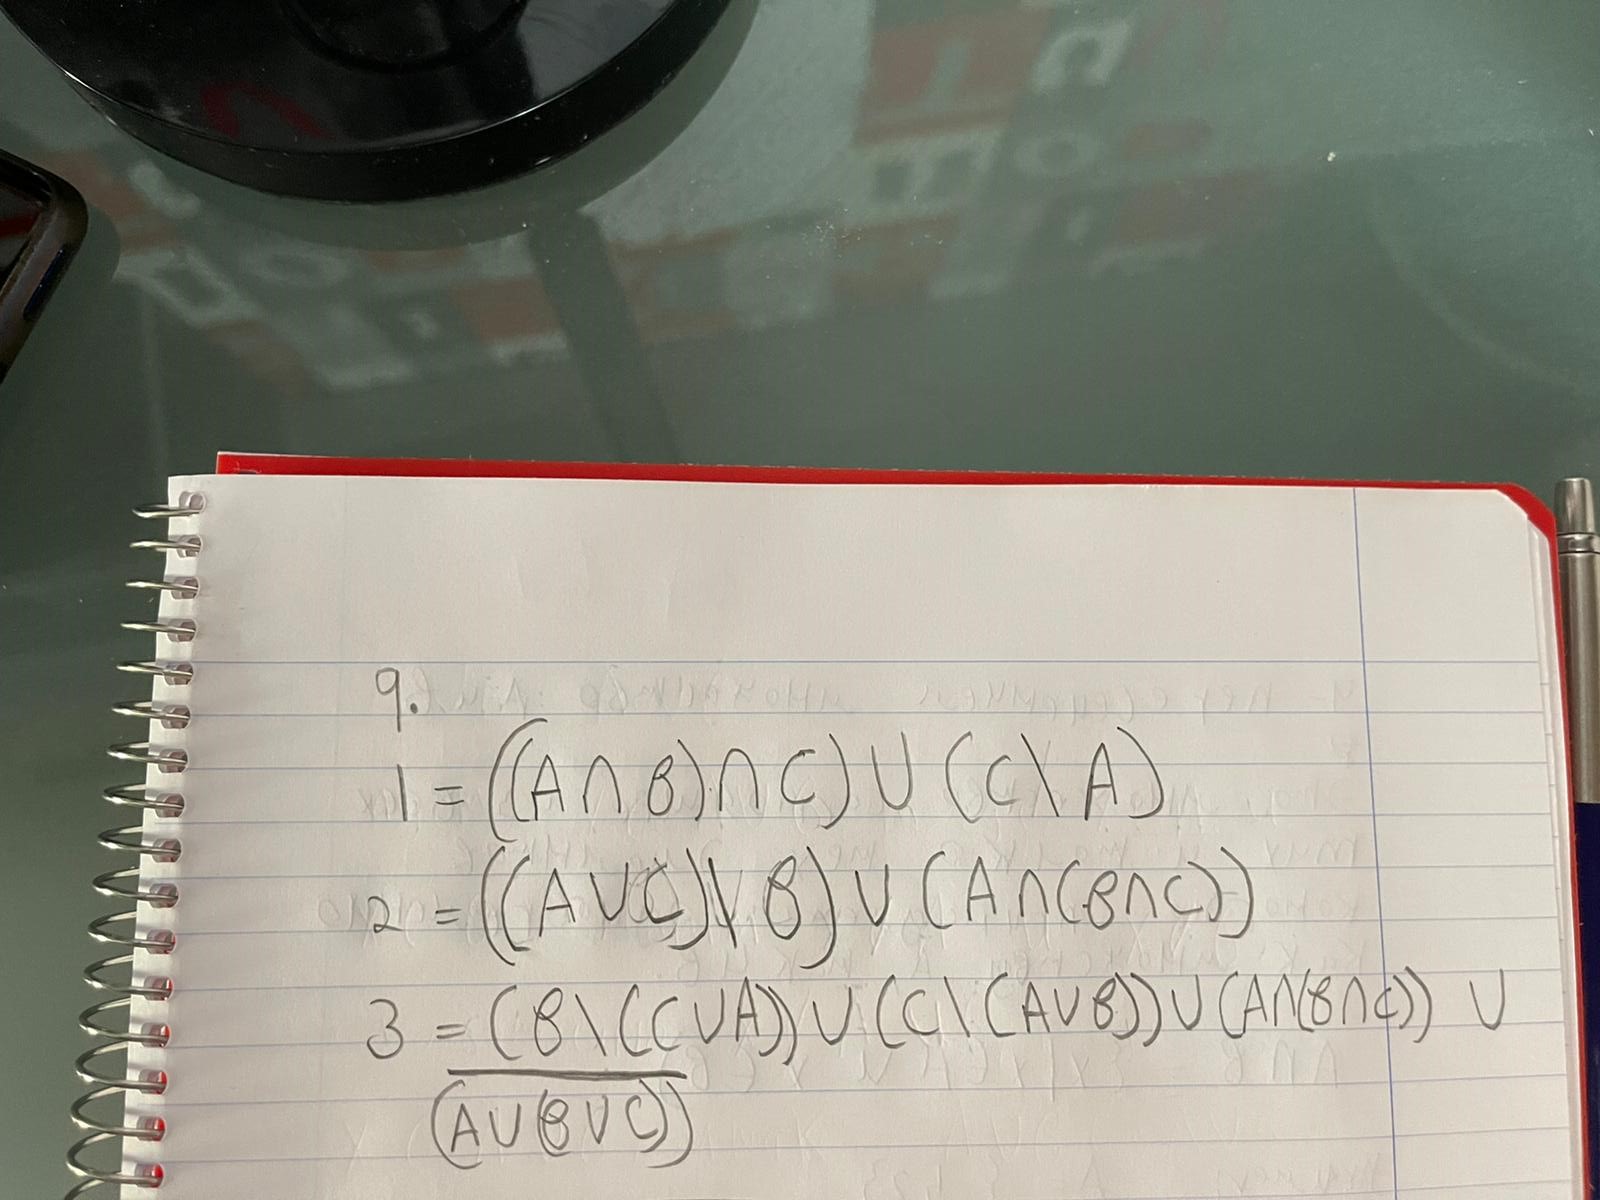 9.
1 = ((A∩B)∩C)∪(C\A)
2 = ((A∪C)\B)∪(A∩(B∩C))
3 = (B\(C∪A))∪(C\(A∪B))∪(A∩(B∩C)) ∪
\overline{(A∪(B∪C))}